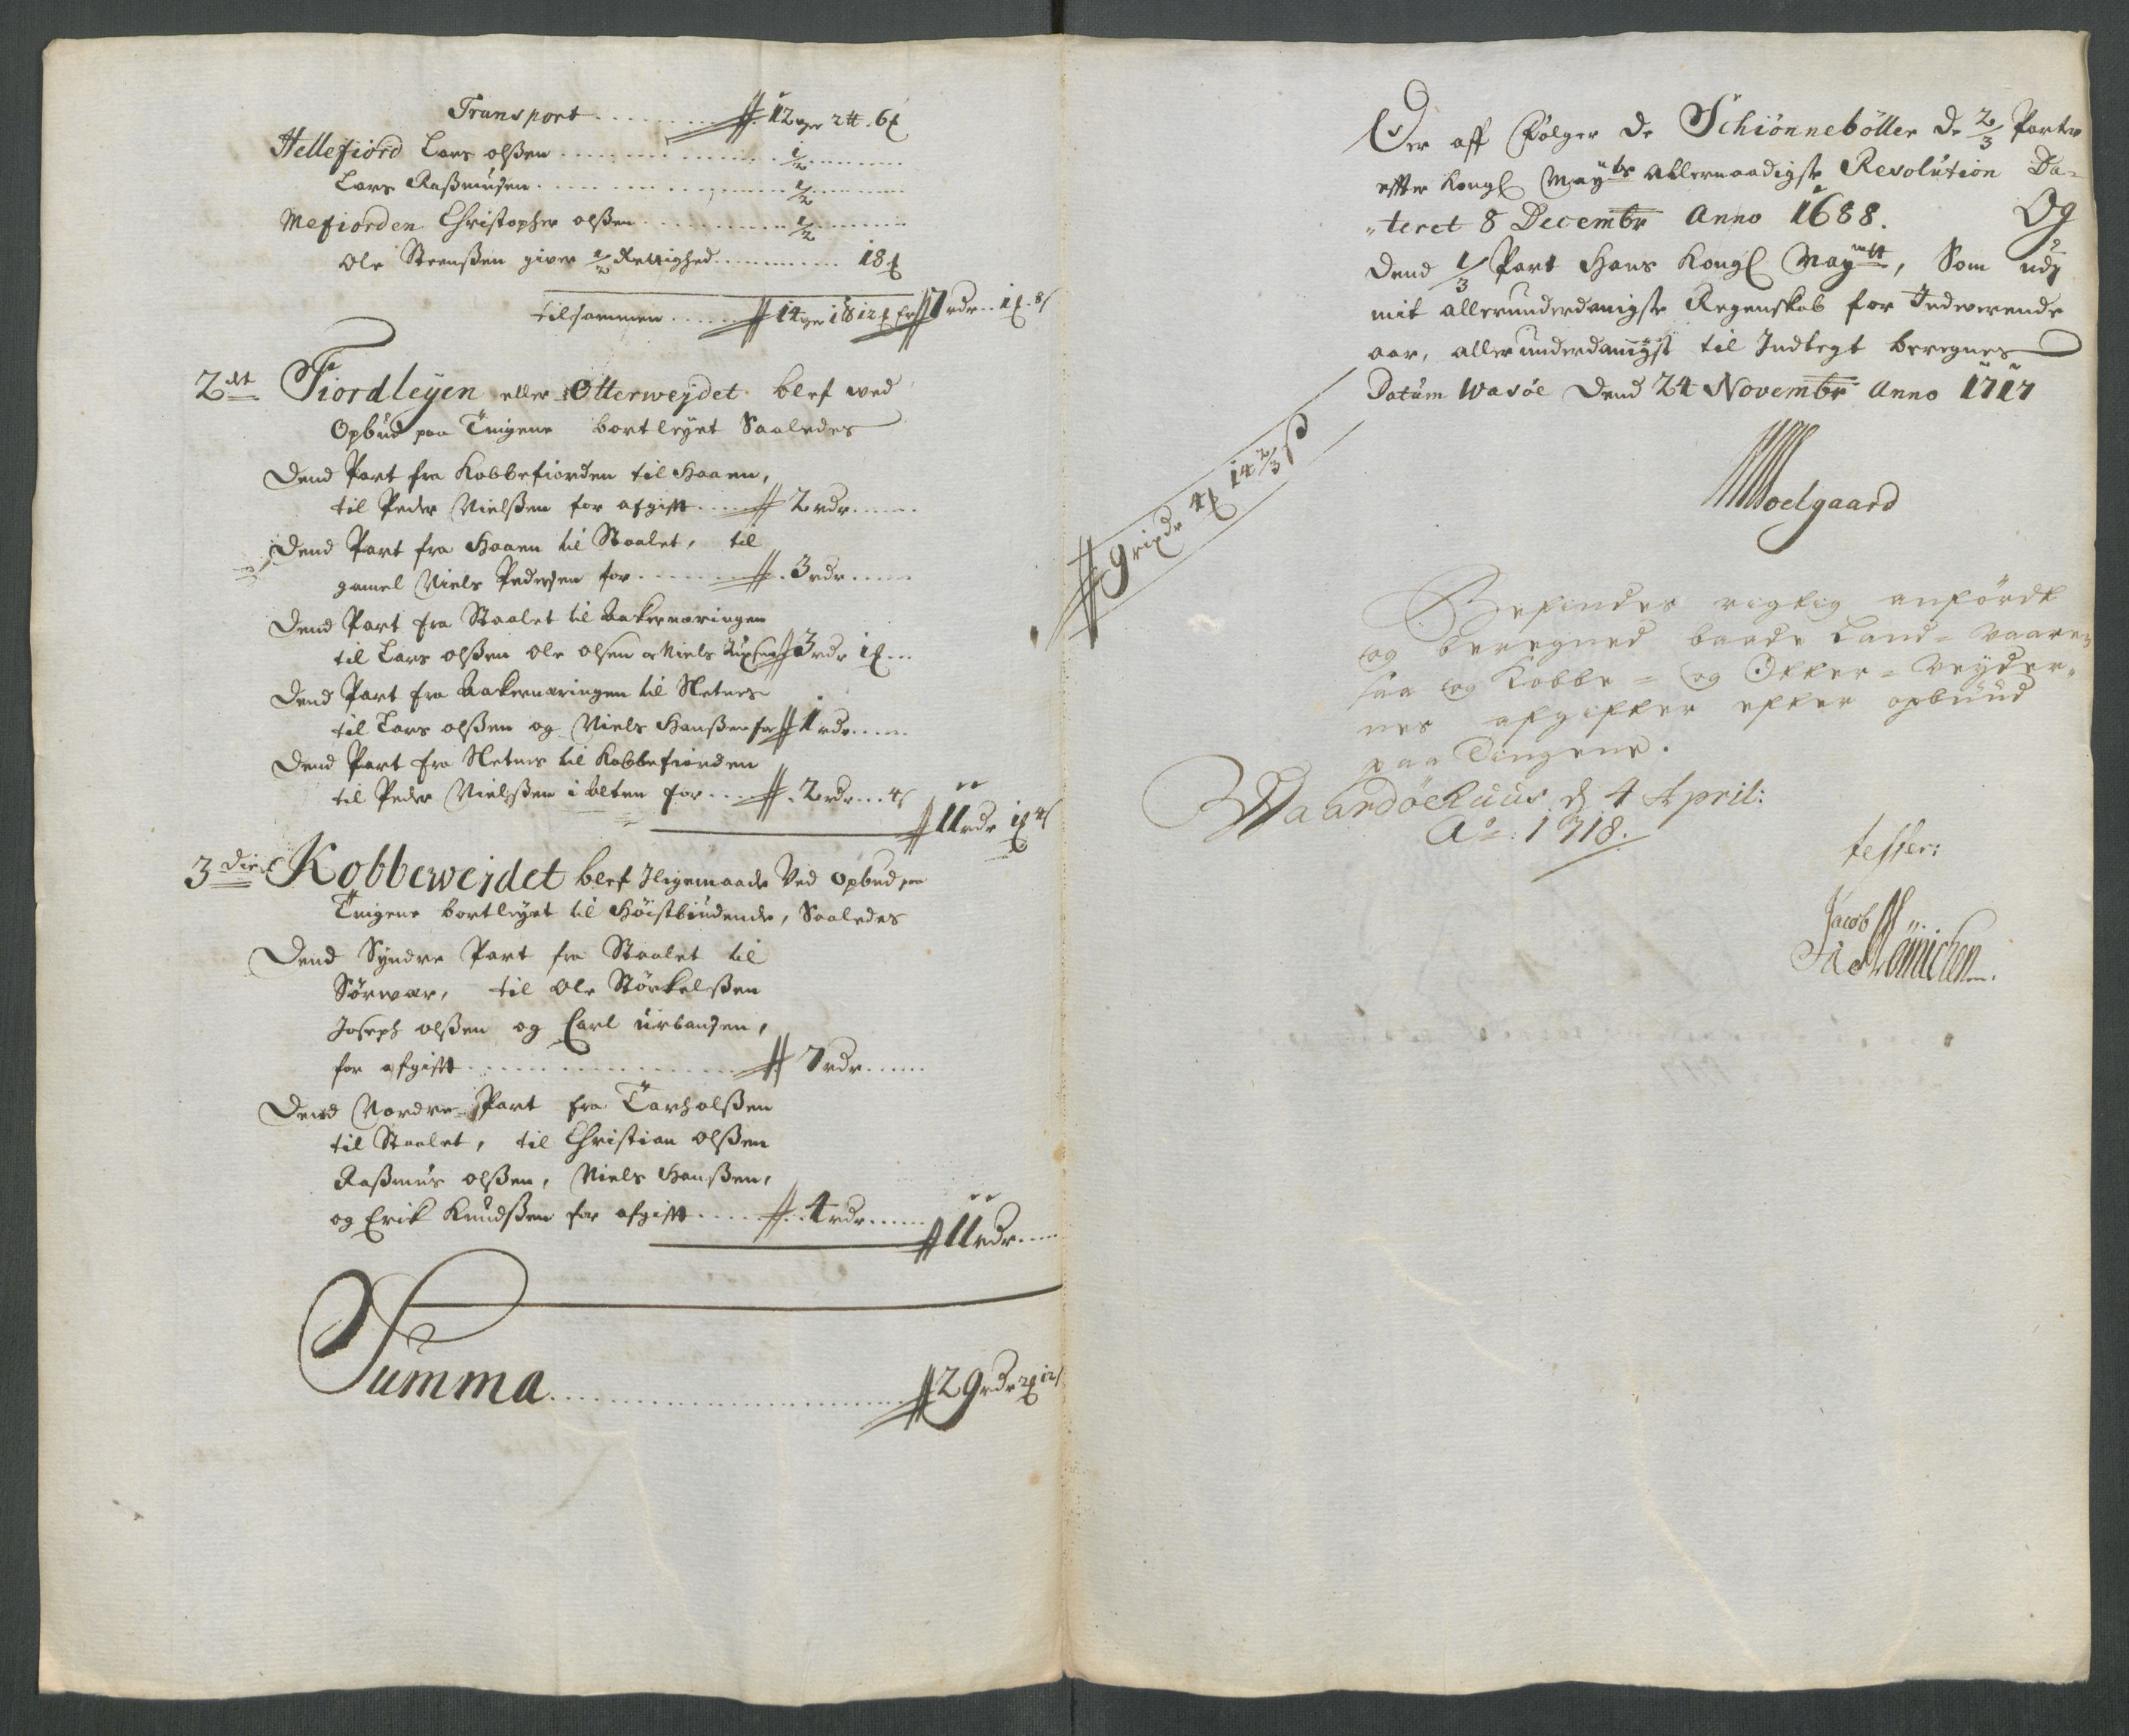 Transport ........ 12 wger 2 tt. 6
Hellefiord Lars olßen ........ 1/2
Lars Raßmusen ........ 1/2
Mefiorden Christopher olßen ........ 1/2
Ole Steenßen giver 1/2 Rettighed ........ 18
tilsammen ...... 14 wger 1 8 12 for 7 rdr .. 1 . 8
2det Fiordleyen eller Otterwejdet blef wed
Opbud paa Tingene bortleyet Saaledes
Dend Part fra Kobbefiorden til Haaen,
til Peder Nielßen for afgifft .... 2 rdr .....
Dend Part fra Haaen til Staalet, til
gamel Niels Pedersen for ........ 3 rdr .....
Dend Part fra Staalet til Aakernæringen
til Lars olßen Ole olsen Niels 3 rdr 1
Dend Part fra Aakernæringen til Netnes
til Lars olßen og Niels Hanßen for 1 rdr .....
Dend Part fra Netnes til Kobbefiorden
til Peder Nielßen i Alten for .... 2 rdr ... 4
11 rdr 1 4
3die Kobbewejdet blef Jligemaade Ved Opbud paa
Tingene bortleyet til Höistbiudende, Saaledes
Dend Syndre Part fra Staalet til
Sörwær, til Ole Störkelßen
Joseph olßen og Carl Urbansen,
for afgifft ........ 7 rdr ......
Dend Nordre Part fra Tarhalßen
til Staalet, til Christian Olßen
Raßmus olßen, Niels Hanßen,
og Erik Knudßen for afgifft ..... 4 rdr .....
11 rdr ....
Summa ........ 29 rdr 2 12
Der aff Fölger de Schiönneböller de 2/3 Parter
effter Kongl Mayts Allernaadigste Resolution Da=
"teret 8 Decembr Anno 1688. Og
Dend 1/3 Part Hans Kongl Maytt, Som udj
mit allerunderdanigste Regenskab for Indeværende
aar, allerunderdanigst til Indtegt beregnes
Datum Wasöe Dend 24 Novembr Anno 1717
9 rixdr 4 14 2/3
Moelgaard
Befindes rigtig anfördt
og beregned baade Land=Vaaren
saa og Kobbe= og Otter=Veyder=
nes afgifter efter opbuud
paa Tingene.
Waardöehuus d 4 April:
Ao: 1718.
tester:
Jacob
Mönichen